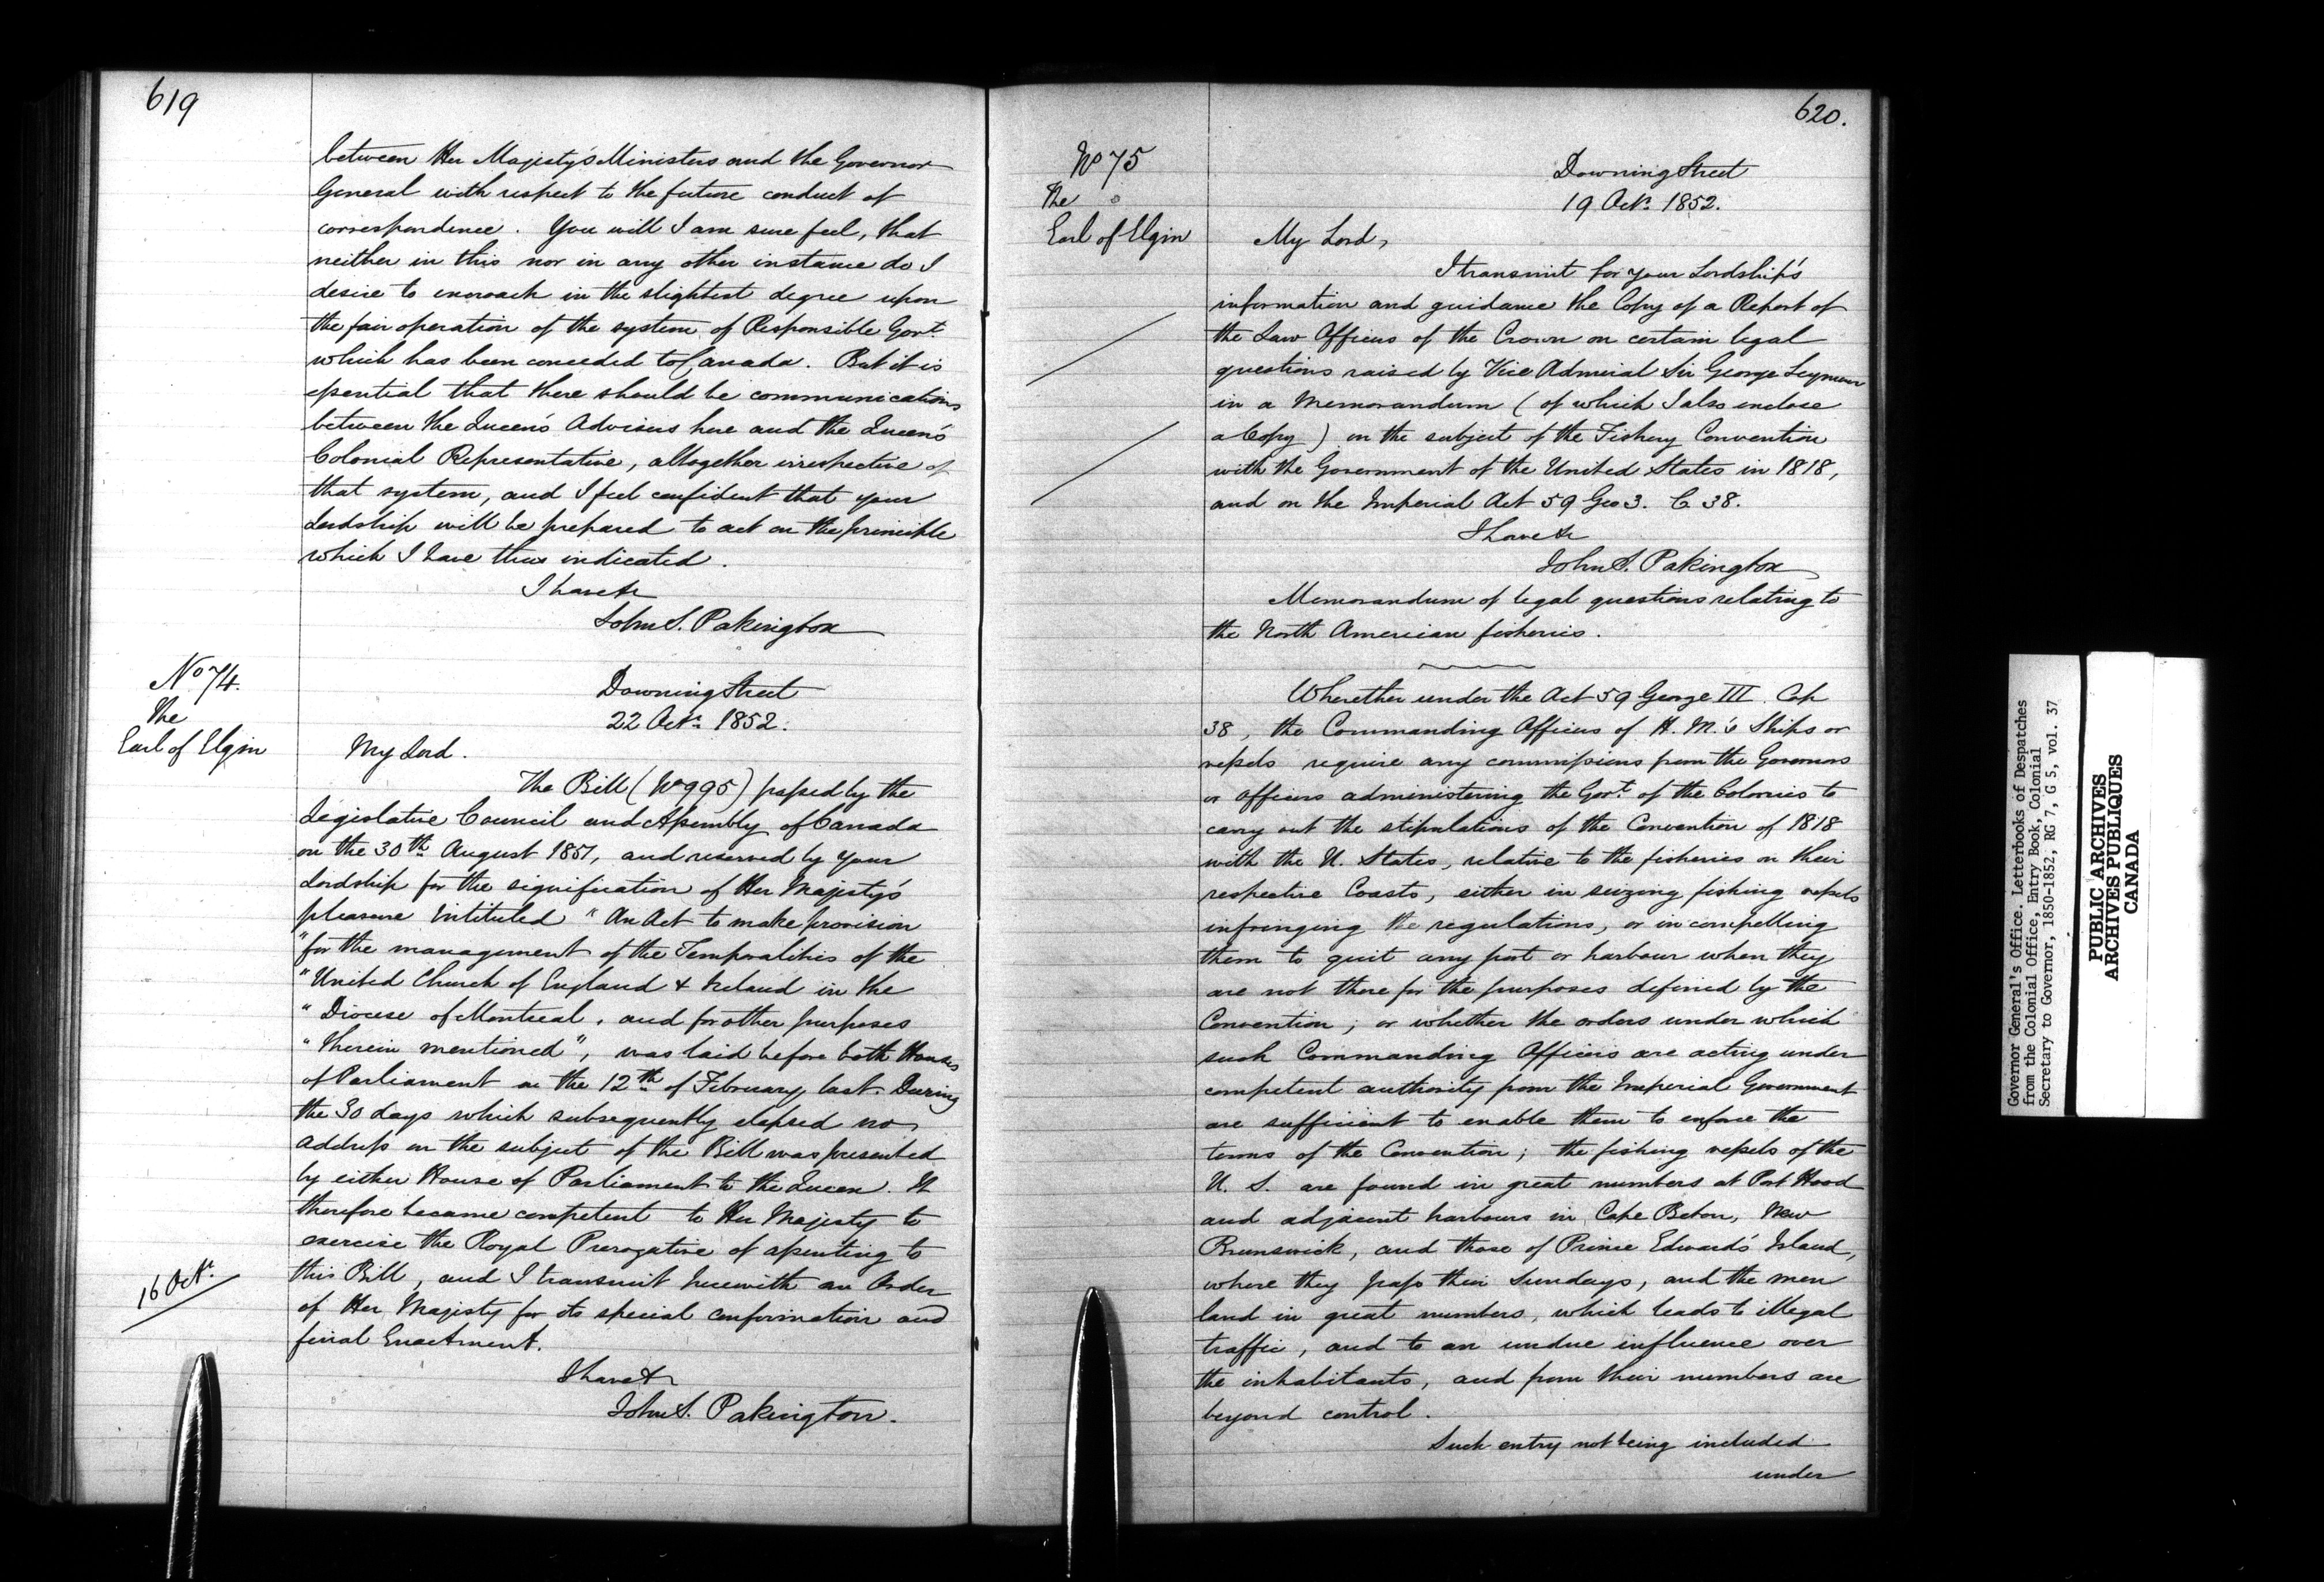 619
between Her Majesty's Ministers and the Governor
General with respect to the future conduct of
correspondence. You will I am sure feel, that
neither in this nor in any other instance do I
desire to encroach in the slightest degree upon
the fair operation of the system of Responsible Govt.
which has been conceded to Canada. But it is
essential that there should be communications
between the Queen's Advisers here and the Queen's
Colonial Representative, altogether irrespective of
that system, and I feel confident that your
Lordship will be prepared to act on the principle
which I have thus indicated.
I have &c
John S. Pakington
No 74.
The
Earl of Elgin
Downing Street
22 Octr. 1852.
My Lord.
The Bill (No 995) passed by the
Legislative Council and Assembly of Canada
on the 30th August 1851, and reserved by your
Lordship for the signification of Her Majesty's
pleasure Intituled "An Act to make provision
"for the management of the Temporalities of the
"United Church of England & Ireland in the
"Diocese of Montreal, and for other purposes
"therein mentioned", was laid before both Houses
of Parliament on the 12th of February last. During
the 30 days which subsequently elapsed no
address on the subject of the Bill was presented
by either House of Parliament to the Queen. It
therefore became competent to Her Majesty to
exercise the Royal Prerogative of assenting to
16 Octr.
this Bill, and I transmit herewith an Order
of Her Majesty for its special confirmation and
final Enactment.
I have &c
John S. Pakington.
620.
No 75
The
Earl of Elgin
Downing Street
19 Octr. 1852.
My Lord,
I transmit for your Lordship's
information and guidance the Copy of a Report of
the Law Officers of the Crown on certain legal
questions raised by Vice Admiral Sir George Seymour
in a Memorandum (of which I also enclose
a Copy) on the subject of the Fishery Convention
with the Government of the United States in 1818,
and on the Imperial Act 59 Geo 3. C. 38.
I have &c
John S. Pakington
Memorandum of legal questions relating to
the North American fisheries.
Wherether under the Act 59 George III. Cap
38, the Commanding Officers of H. M.'s Ships or
vessels require any commissions from the Governors
or officers administering the Govt. of the Colonies to
carry out the stipulations of the Convention of 1818
with the U. States, relative to the fisheries on their
respective Coasts, either in seizing fishing vessels
infringing the regulations, or in compelling
them to quit any port or harbour when they
are not there for the purposes defined by the
Convention; or whether the orders under which
such Commanding Officers are acting under
competent authority from the Imperial Government
are sufficient to enable them to enforce the
terms of the Convention; the fishing vessels of the
U. S. are found in great numbers at Port Hood
and adjacent harbours in Cape Breton, New
Brunswick, and those of Prince Edward's Island,
where they pass their Sundays, and the men
land in great numbers, which leads to illegal
traffic, and to an undue influence over
the inhabitants, and from their numbers are
beyond control.
Such entry not being included
under
Governor General's Office. Letterbooks of Despatches
from the Colonial Office, Entry Book, Colonial
Secretary to Governor, 1850-1852, RG 7, G 5, vol. 37
PUBLIC ARCHIVES
ARCHIVES PUBLIQUES
CANADA